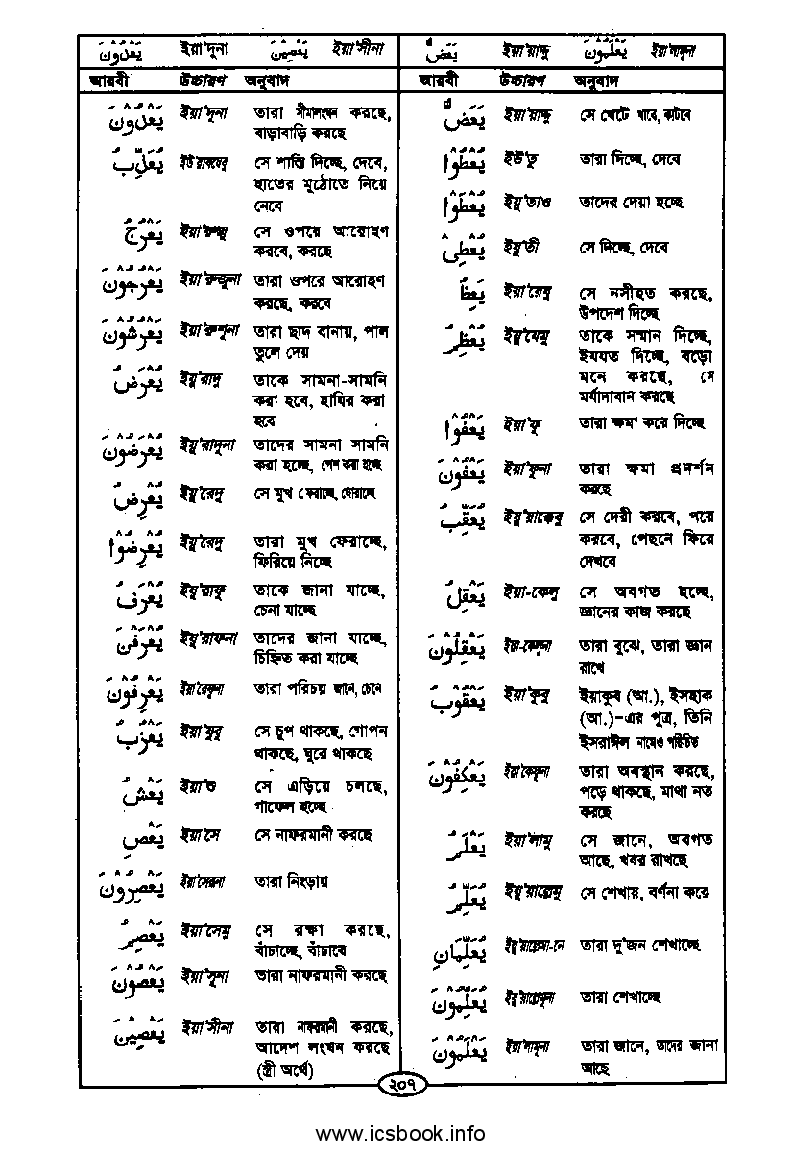 يَعْدُوْنَ ইয়া'দুনা يَعْصِيْنَ ইয়া'সীনা
আরবী উচ্চারণ অনুবাদ
يَعْدُوْنَ ইয়া'দুনা তারা সীমালংঘন করছে,
বাড়াবাড়ি করছে
يُعَذِّبُ সে শাস্তি দিচ্ছে, দেবে,
হাতের মুঠোতে নিয়ে
নেবে
يَعْرُجُ ইয়া'রুজু সে ওপরে আরোহণ
করবে, করছে
يَعْرُجُوْنَ ইয়া'রুজুনা তারা ওপরে আরোহণ
করছে, করবে
يَعْرِشُوْنَ ইয়া'রুশুনা তারা ছাদ বানায়, পাল
তুলে দেয়
يُعْرَضُ ইয়ু'রাদু তাকে সামনা-সামনি
করা হবে, হাযির করা
হবে
يُعْرَضُوْنَ ইয়ু'রাদুনা তাদের সামনা সামনি
করা হচ্ছে, পেশ করা হচ্ছে
يُعْرِضُ ইয়ু'রেদু সে মুখ ফেরাচ্ছে, ঘোরাচ্ছে
يُعْرِضُوْا ইয়ু'রেদু তারা মুখ ফেরাচ্ছে,
ফিরিয়ে নিচ্ছে
يُعْرَفُ ইয়ু'রাফু তাকে জানা যাচ্ছে,
চেনা যাচ্ছে
يُعْرَفْنَ ইয়ু'রাফনা তাদের জানা যাচ্ছে,
চিহ্নিত করা যাচ্ছে
يَعْرِفُوْنَ ইয়া'রেফুনা তারা পরিচয় জানে, চেনে
يَعْزُبُ ইয়া'যুবু সে চুপ থাকছে, গোপন
থাকছে, ঘুরে থাকছে
يَعْشُ ইয়া'শু সে এড়িয়ে চলছে,
গাফেল হচ্ছে
يَعْصِ ইয়া'সে সে নাফরমানী করছে
يَعْصِرُوْنَ ইয়া'সেরুনা তারা নিংড়ায়
يَعْصِمُ ইয়া'সেমু সে রক্ষা করছে,
বাঁচাচ্ছে, বাঁচাবে
يَعْصُوْنَ ইয়া'সুনা তারা নাফরমানী করছে
يَعْصِيْنَ ইয়া'সীনা তারা নাফরমানী করছে,
আদেশ লংঘন করছে
(স্ত্রী অর্থে)
يَعَضُّ ইয়া'য়াদ্দু يَعْلَمُوْنَ ইয়া'লামুনা
আরবী উচ্চারণ অনুবাদ
يَعَضُّ ইয়া'য়াদ্দু সে খেটে খাবে, কাটবে
يُعْطُوْا ইউ'তু তারা দিচ্ছে, দেবে
يُعْطَوْا ইয়ু'তাও তাদের দেয়া হচ্ছে
يُعْطِىْ ইয়ু'তী সে দিচ্ছে, দেবে
يَعِظُ ইয়া'য়েযু সে নসীহত করছে,
উপদেশ দিচ্ছে
يُعْظِمُ ইয়ু'যেমু তাকে সম্মান দিচ্ছে,
ইযযত দিচ্ছে, বড়ো
মনে করছে, সে
মর্যাদাবান করছে
يَعْفُوْا ইয়া'ফু তারা ক্ষমা করে দিচ্ছে
يَعْفُوْنَ ইয়া'ফুনা তারা ক্ষমা প্রদর্শন
করছে
يُعَقِّبُ ইয়ু'য়াক্কেবু সে দেরী করবে, পরে
করবে, পেছনে ফিরে
দেখবে
يَعْقِلُ ইয়া-কেলু সে অবগত হচ্ছে,
জ্ঞানের কাজ করছে
يَعْقِلُوْنَ ইয়া-কেলুনা তারা বুঝে, তারা জ্ঞান
রাখে
يَعْقُوْبُ ইয়া'কুবু ইয়াকুব (আ.), ইসহাক
(আ.)-এর পুত্র, তিনি
ইসরাঈল নামেও পরিচিত
يَعْكِفُوْنَ ইয়া'কেফুনা তারা অবস্থান করছে,
পড়ে থাকছে, মাথা নত
করছে
يَعْلَمُ ইয়া'লামু সে জানে, অবগত
আছে, খবর রাখছে
يُعَلِّمُ ইয়ু'য়াল্লেমু সে শেখায়, বর্ণনা করে
يُعَلِّمَانِ ইয়ু'য়াল্লেমা-নে তারা দু'জন শেখাচ্ছে
يُعَلِّمُوْنَ ইয়ু'য়াল্লেমুনা তারা শেখাচ্ছে
يَعْلَمُوْنَ ইয়া'লামুনা তারা জানে, তাদের জানা
আছে
২০৭
www.icsbook.info